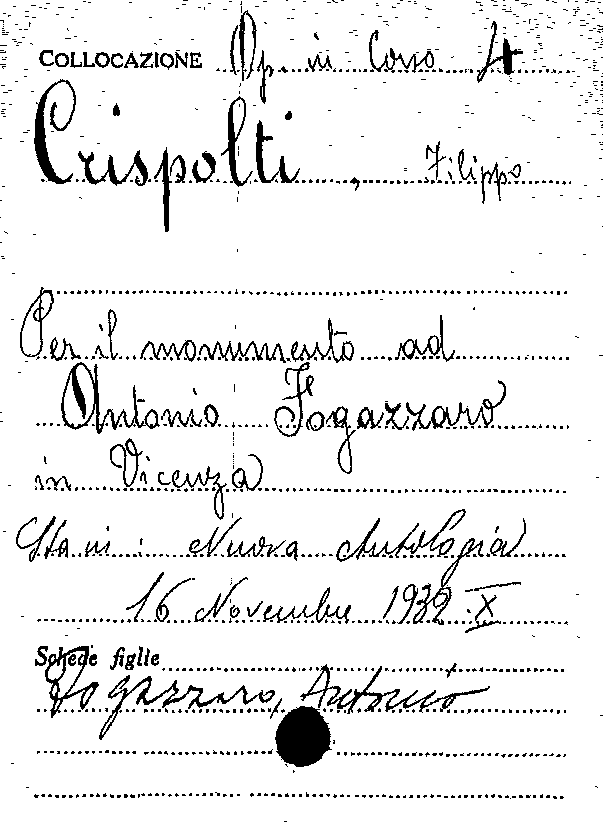 COLLOCAZIONE Op. in Corso 4
Crispolti, Filippo
Per il monumento ad
Antonio Fogazzaro
in Vicenza
Sta in: Nuova Antologia
16 Novembre 1932.X
Schede figlie
Fogazzaro, Antonio